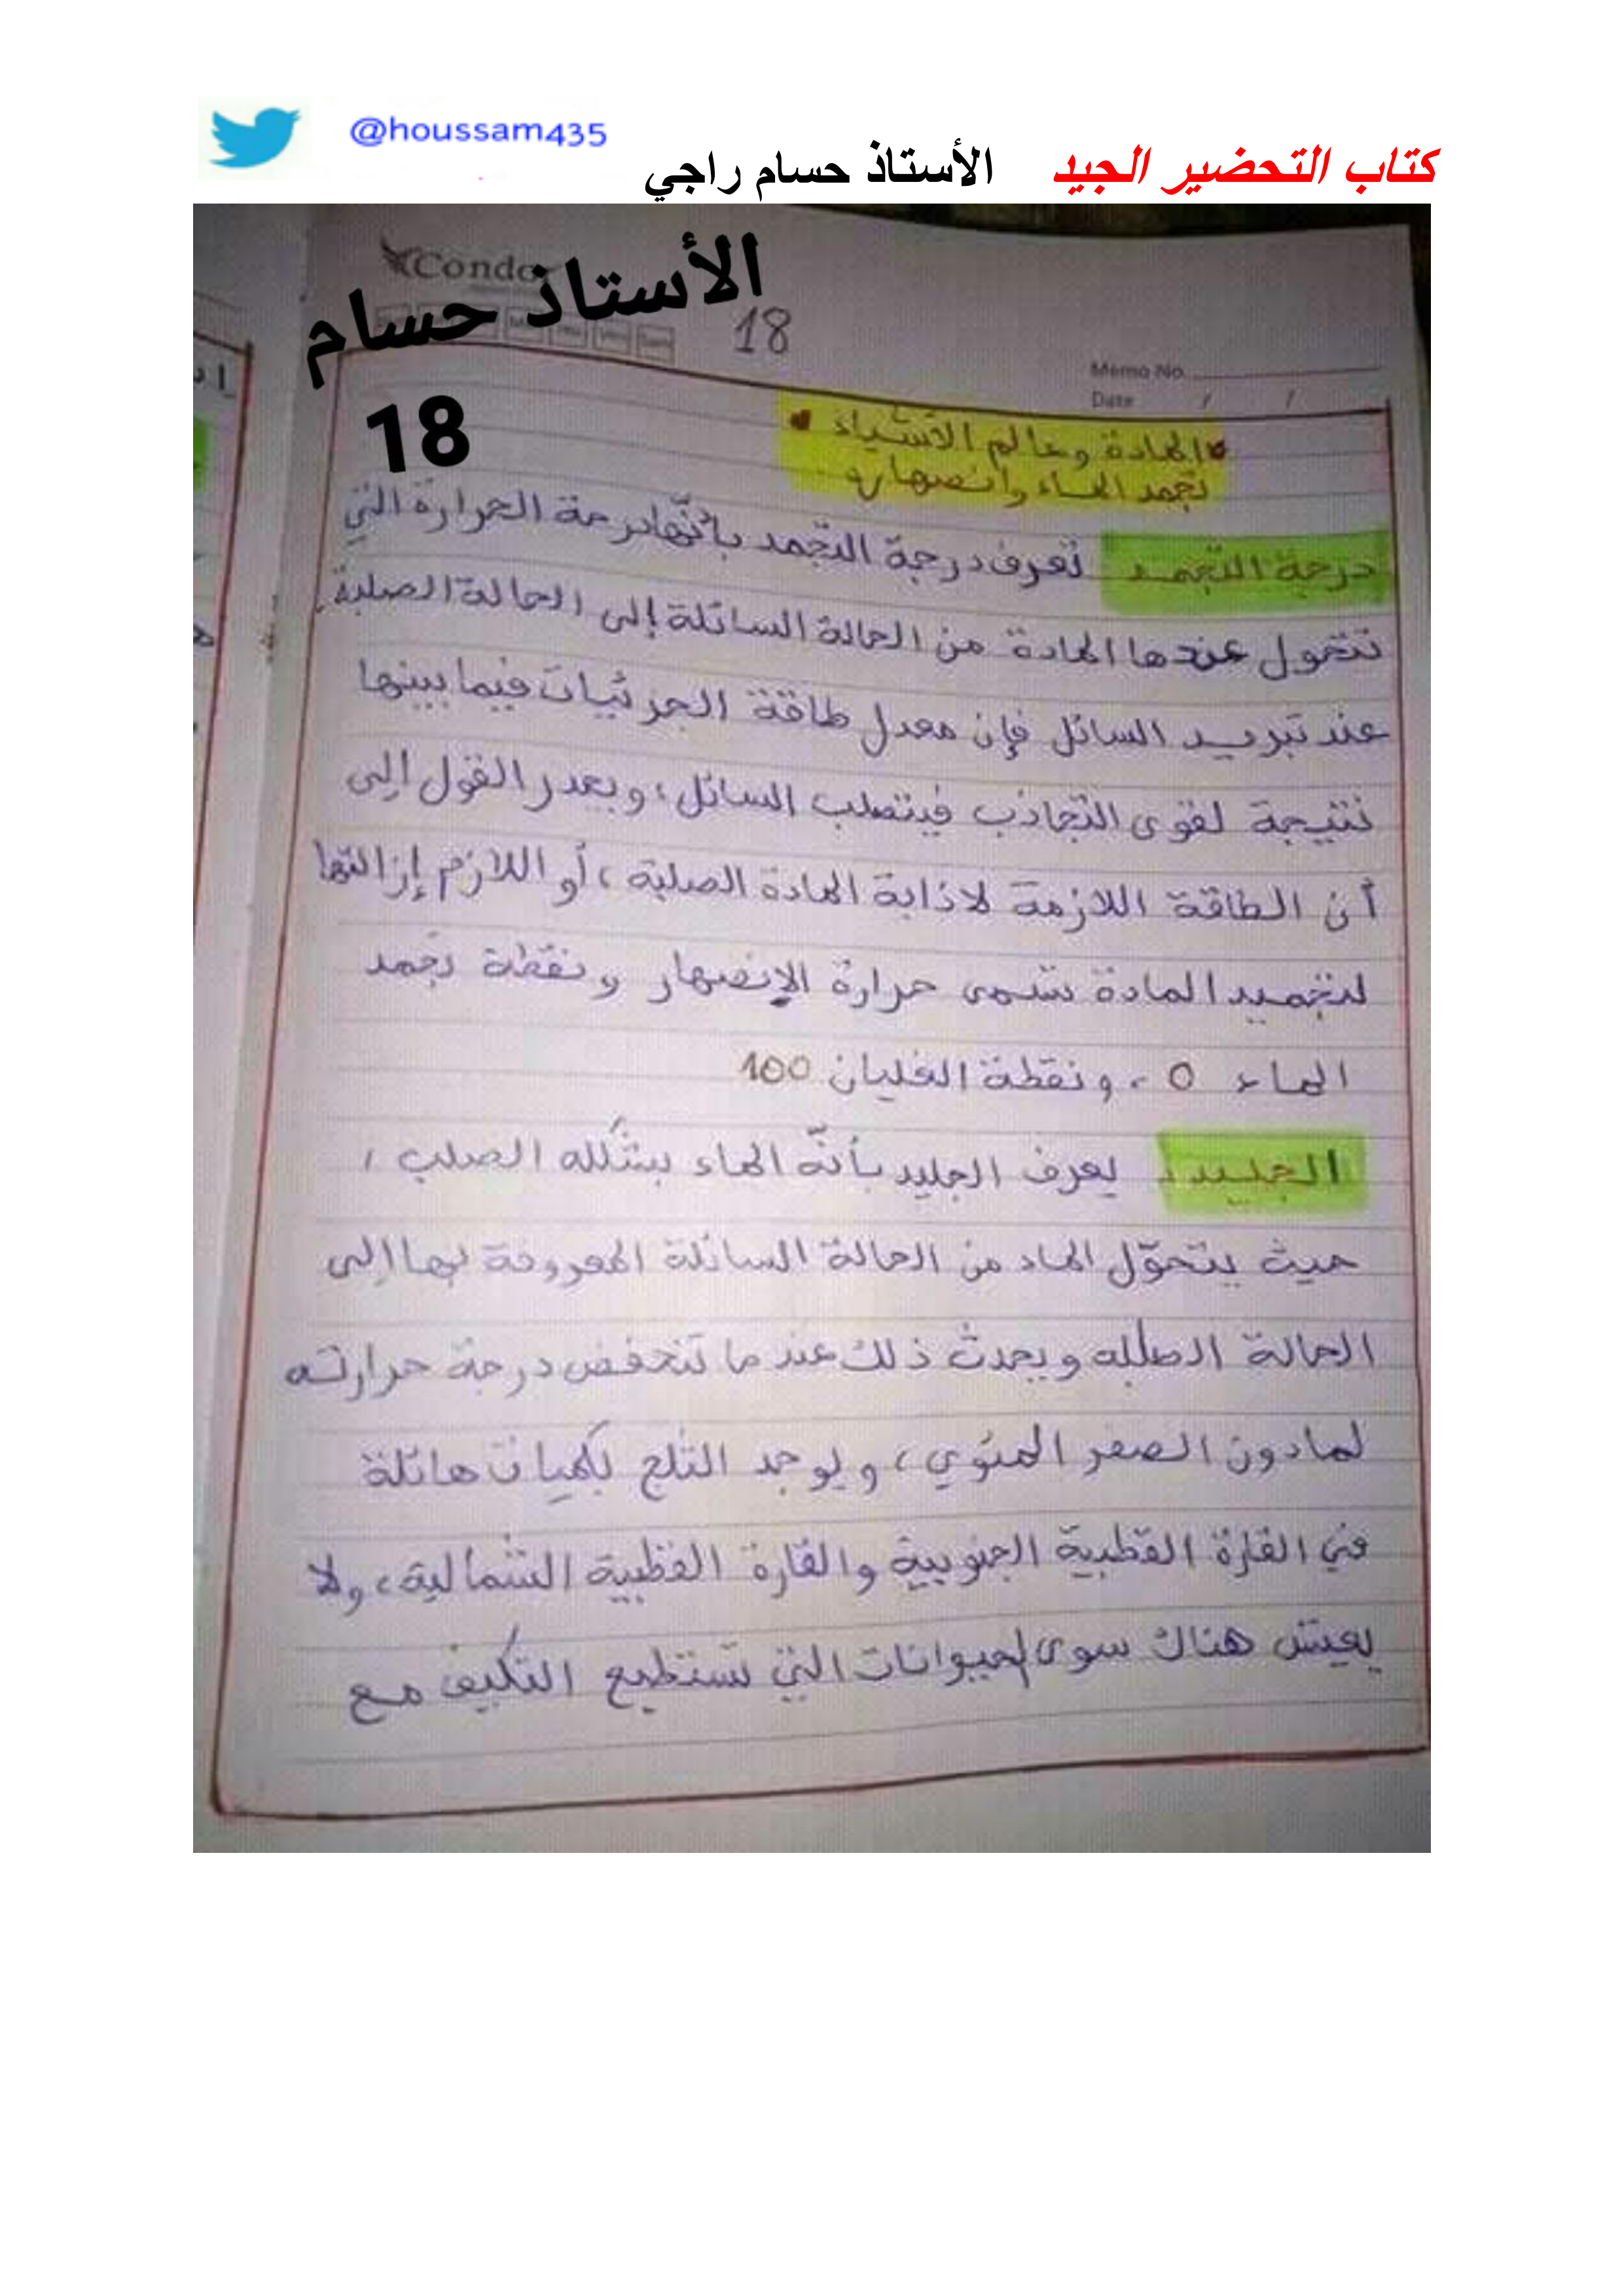 @houssam435
كتاب التحضير الجيد الأستاذ حسام راجي
Condo
الأستاذ حسام
18
18
Memo No.
Date / /
المادة وعالم الأشياء
تجمد الماء وانصهاره
درجة التجمد تعرف درجة التجمد بأنّها درجة الحرارة التي
تتحول عندها المادة من الحالة السائلة إلى الحالة الصلبة.
عند تبريد السائل فإن معدل طاقة الجزئيات فيما بينها
نتيجة لقوى التجاذب فيتصلب السائل، ويعدر القول إلى
أن الطاقة اللازمة لاذابة المادة الصلبة، أو اللازم إزالتها
لتجميد المادة تسمى حرارة الإنصهار ونقطة تجمد
الماء 0، ونقطة الغليان 100
الجليد: يعرف الجليد بأنّه الماء بشكله الصلب،
حيث يتحوّل الماء من الحالة السائلة المعروفة بها إلى
الحالة الصلبه ويحدث ذلك عند ما تنخفض درجة حرارته
لمادون الصفر المئوي، ويوجد الثلج بكميات هائلة
في القارة القطبية الجنوبية والقارة القطبية الشمالية، ولا
يعيش هناك سوى الحيوانات التي تستطيع التكيف مع